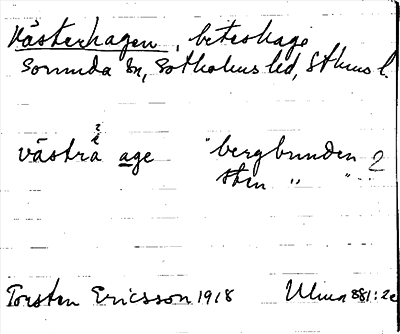 Västerhagen, beteshage
Sorunda Sn, Sotholms hd, Sthms l.
västra age "bergbunden 2
sten " "
Torsten Ericsson 1918 Ulma 881:2c